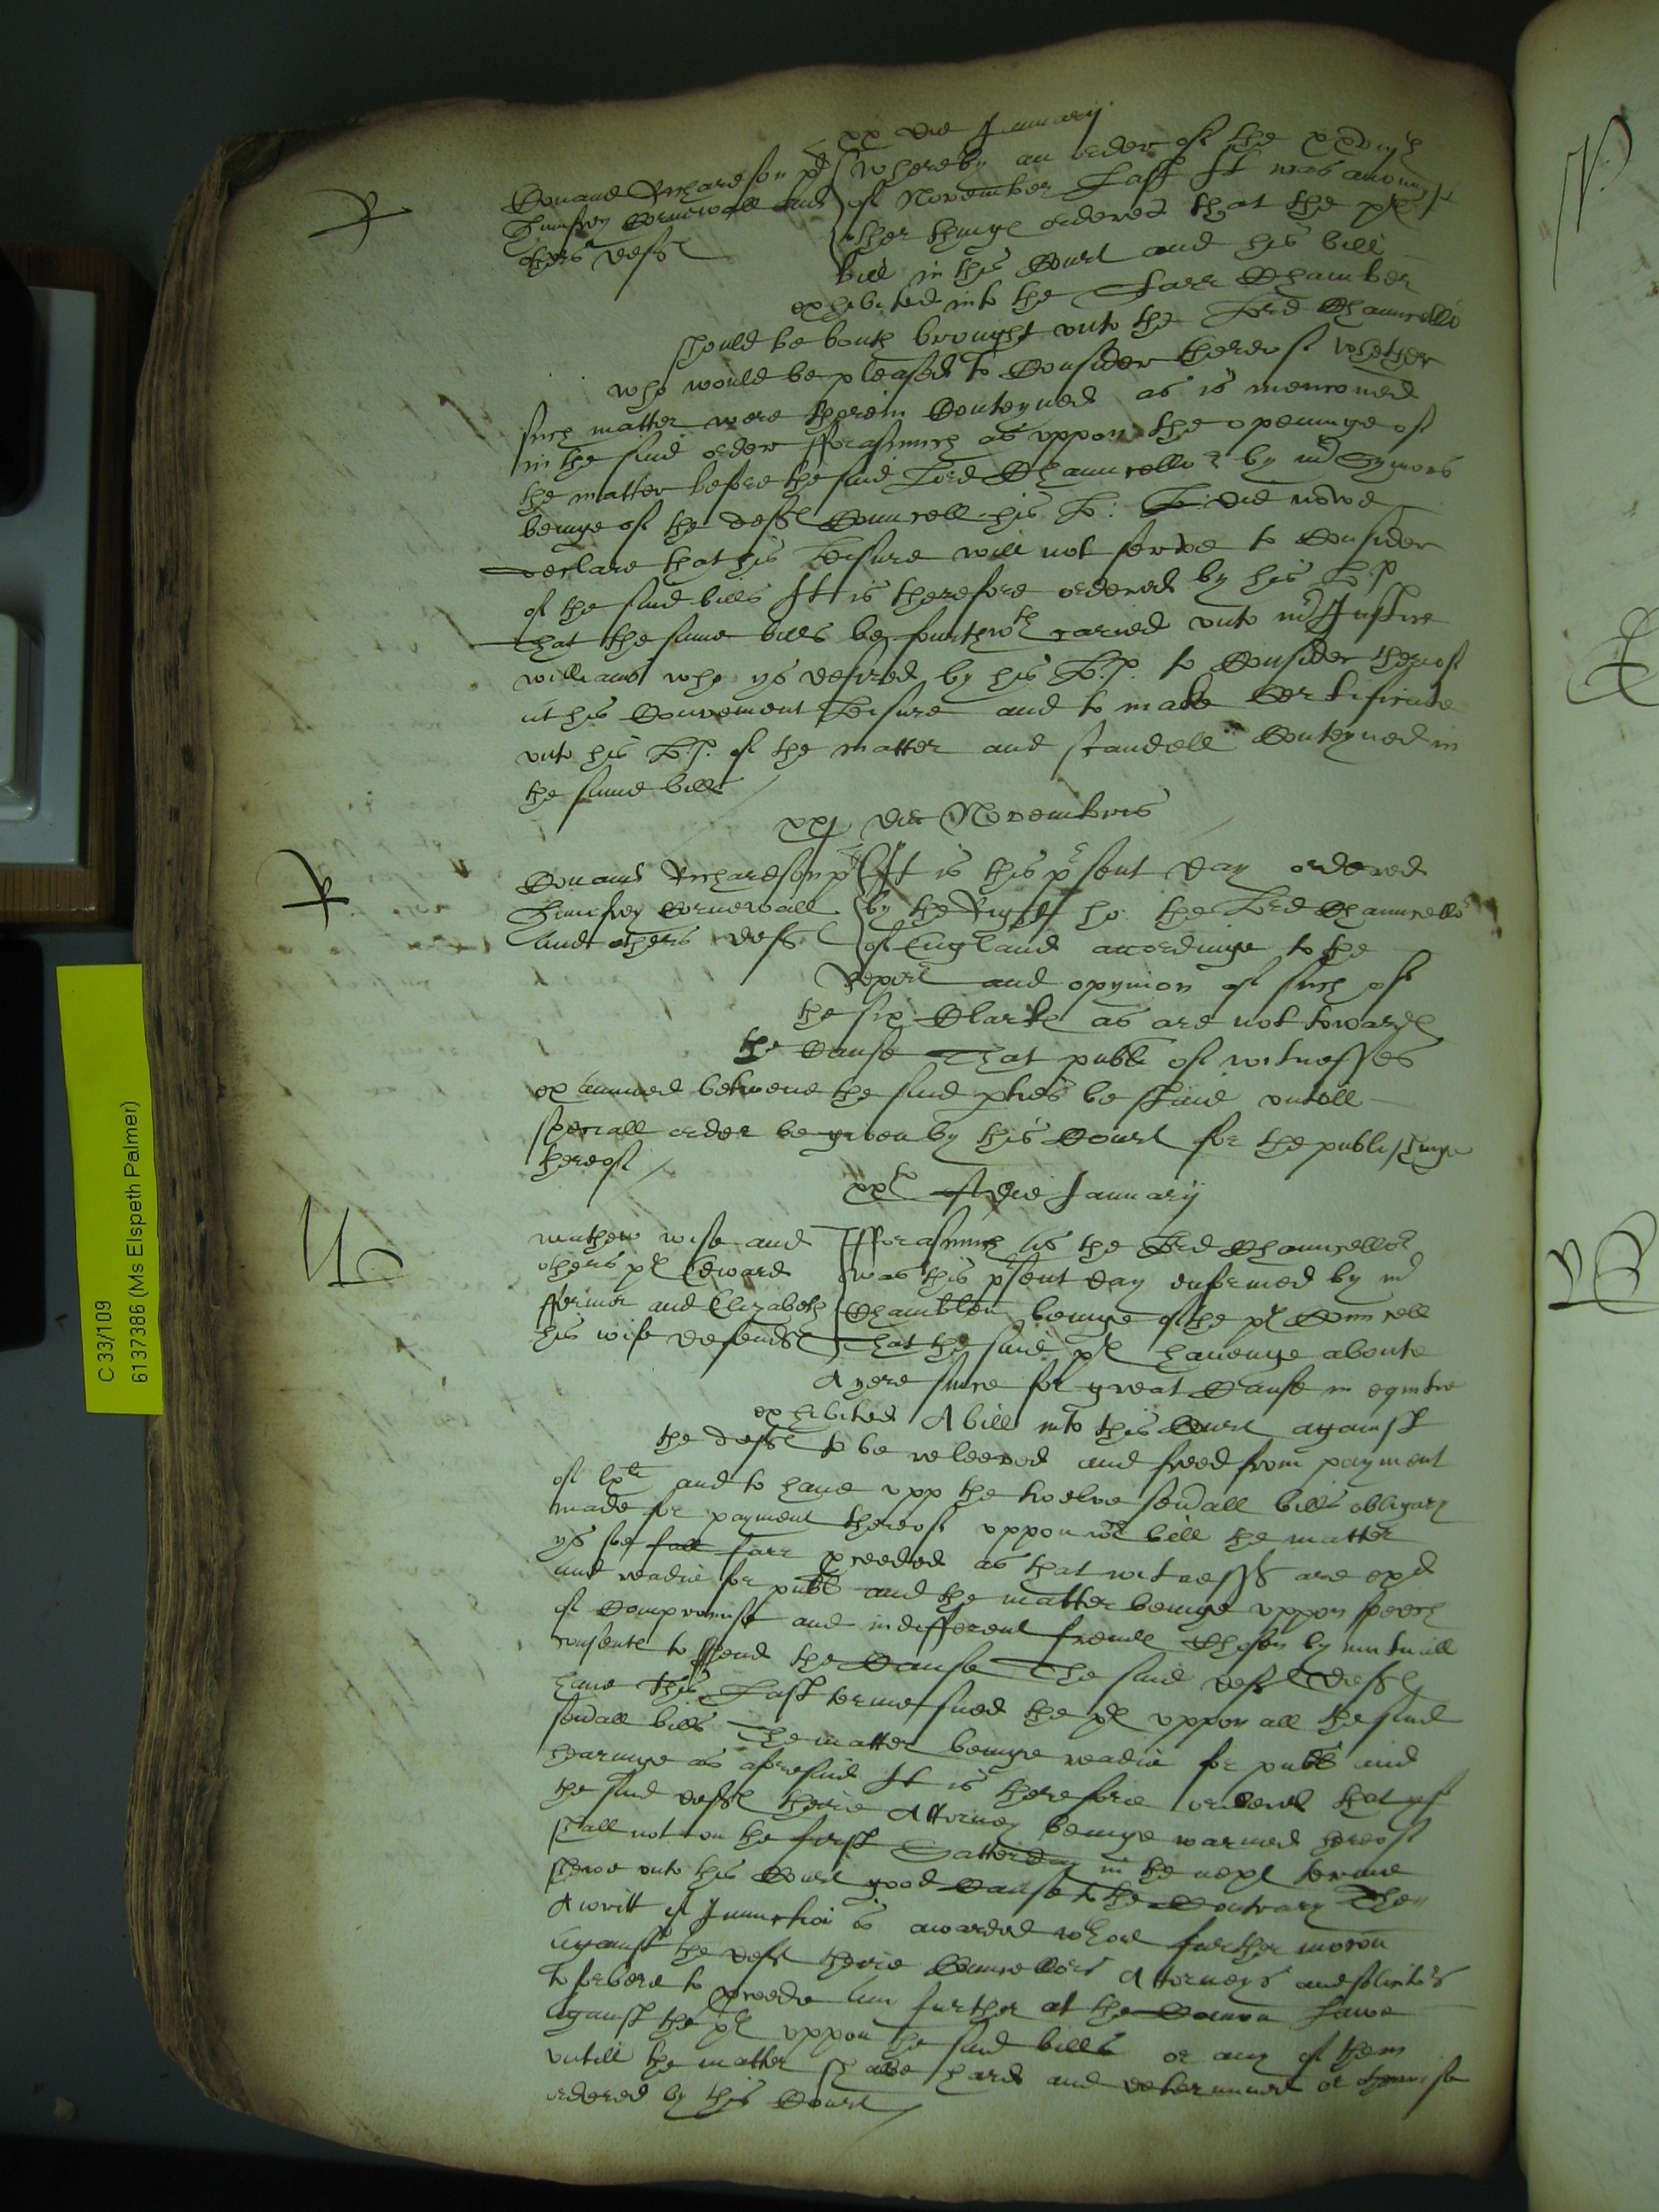 xx die January
Conand Richardson pl
Humfrey Cornewall and
others defts
Whereby an order of the xxviijth
of November Last It was amongst
other thinges ordered that the pl
bill in this Court and his bill
exhibited into the Starr Chamber
should be bouth brought unto the Lord Chauncellor
who would be pleased to Consider thereof whether
such matter were therein Conteyned as is mencioned
in the said order fforasmuch as uppon the openinge of
the matter before the said Lord Chauncellor by mr Symons
beinge of the defts Councell his L: did nowe
declare that his Leisure will not serve to Consider
of the said bills It is therefore ordered by his L:P
that the same bills be fourthwth caried unto mr Justice
williams who ys desired by his L:P. to Consider thereof
at his Convenient Leisure and to make Certificate
unto his L:P. of the matter and scandell Conteyned in
the same bills
xxj die Novembris
Conand Richardson pl
Humfrey Cornewall
and others defts
It is this psent day ordered
by the Right ho: the Lord Chauncellor
of England accordinge to the
Report and opynion of such of
the six Clarkes as are not towards
the Cause That publ of witnesses
examined betwene the said pties be staid untill
speciall order be given by this Court for the publishinge
thereof
die January
mathew wise and
others pl Edward
ffermor and Elizabeth
his wife defendts
fforasmuch as the Lord Chauncellor
was this psent day enformed by mr
Chamblen beinge of the pl Councell
That the said pl haveinge aboute
A yere since for great Cause in equitie
exhibited A bill into this Court against
the defts to be releeved and freed from payment
of lxli and to have upp the twelve severall bills obligary
made for payment thereof uppon wch bill the matter
ys soe fall farr pceeded as that witnesses are exd
and readie for publ and the matter beinge uppon speech
of Compromise and indifferent frends Chosen by mutuall
consente to end the Cause The said defts
have this Last terme sued the pl uppon all the said
severall bills The matter beinge readie for publ and
hearinge as aforesaid It is therefore ordered that yf
the said defts theire Attorney beinge warned hereof
shall not on the first Satterday in the next terme
shewe unto this Court good Cause to the Contrary Then
A writt of Iniunction is awarded wthout further mocon
against the defts theire Councellors Attorneys and solicitors
to forbere to pceede anie further at the Comon Lawe
against the pl uppon the said bills or any of them
untill the matter shalbe hard and determined or otherwise
ordered by this Court
C 33/109
6137386 (Ms Elspeth Palmer)